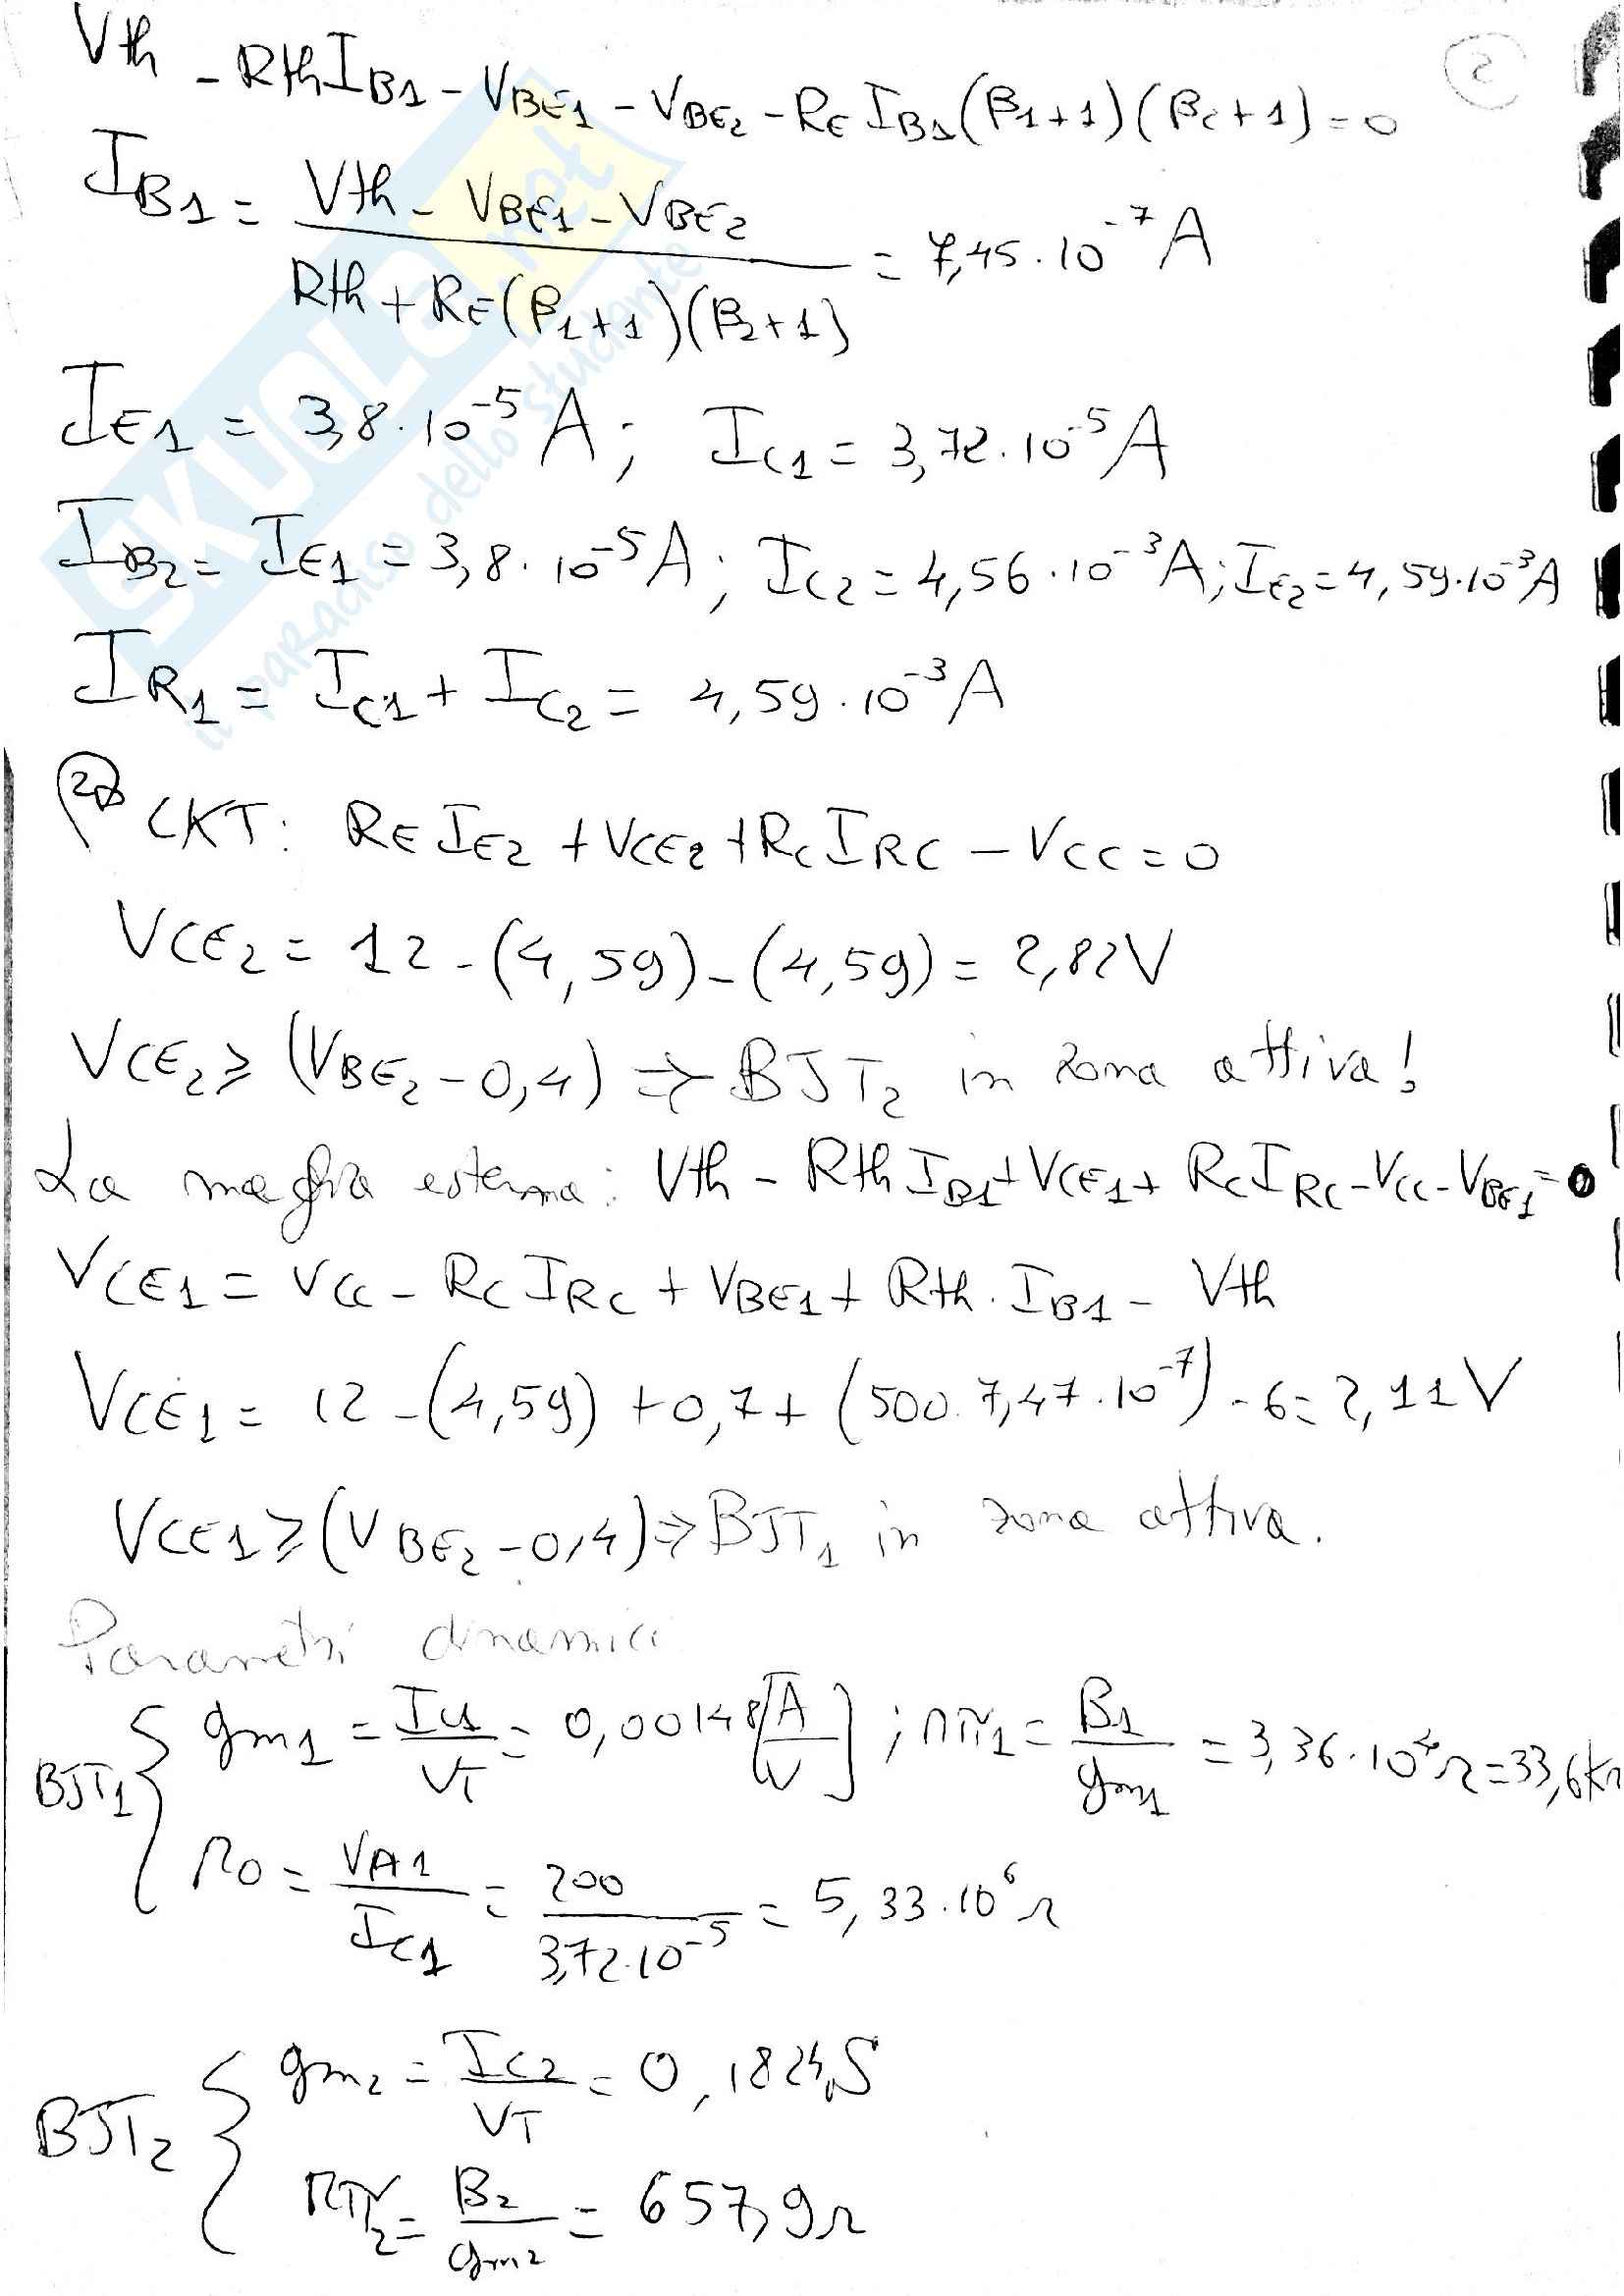 Vth - RthI_B1 - V_BE1 - V_BE2 - R_E I_B1(β1+1)(β2+1)=0
2
I_B1 = (Vth - V_BE1 - V_BE2) / (Rth + R_E(β1+1)(β2+1)) = 7,45·10^-7 A
I_E1 = 3,8·10^-5 A; I_C1 = 3,72·10^-5 A
I_B2 = I_E1 = 3,8·10^-5 A; I_C2 = 4,56·10^-3 A; I_E2 = 4,59·10^-3 A
I_R1 = I_C1 + I_C2 = 4,59·10^-3 A
2° CKT: R_E I_E2 + V_CE2 + R_C I_RC - V_CC = 0
V_CE2 = 12 - (4,59) - (4,59) = 2,82V
V_CE2 ≥ (V_BE2 - 0,4) ⇒ BJT2 in zona attiva!
La maglia esterna: Vth - Rth I_B1 + V_CE1 + R_C I_RC - V_CC - V_BE1 = 0
V_CE1 = V_CC - R_C I_RC + V_BE1 + Rth · I_B1 - Vth
V_CE1 = 12 - (4,59) + 0,7 + (500·7,47·10^-7) - 6 = 2,11V
V_CE1 ≥ (V_BE2 - 0,4) ⇒ BJT1 in zona attiva.
Parametri dinamici
BJT1 { gm1 = I_C1/V_T = 0,00148 [A/V]; rπ1 = β1/gm1 = 3,36·10^4 Ω = 33,6kΩ
r0 = V_A1/I_C1 = 200/3,72·10^-5 = 5,33·10^6 Ω
BJT2 { gm2 = I_C2/V_T = 0,1824 S
rπ2 = β2/gm2 = 657,9 Ω
SKUOLA.net
il paradiso dello studente